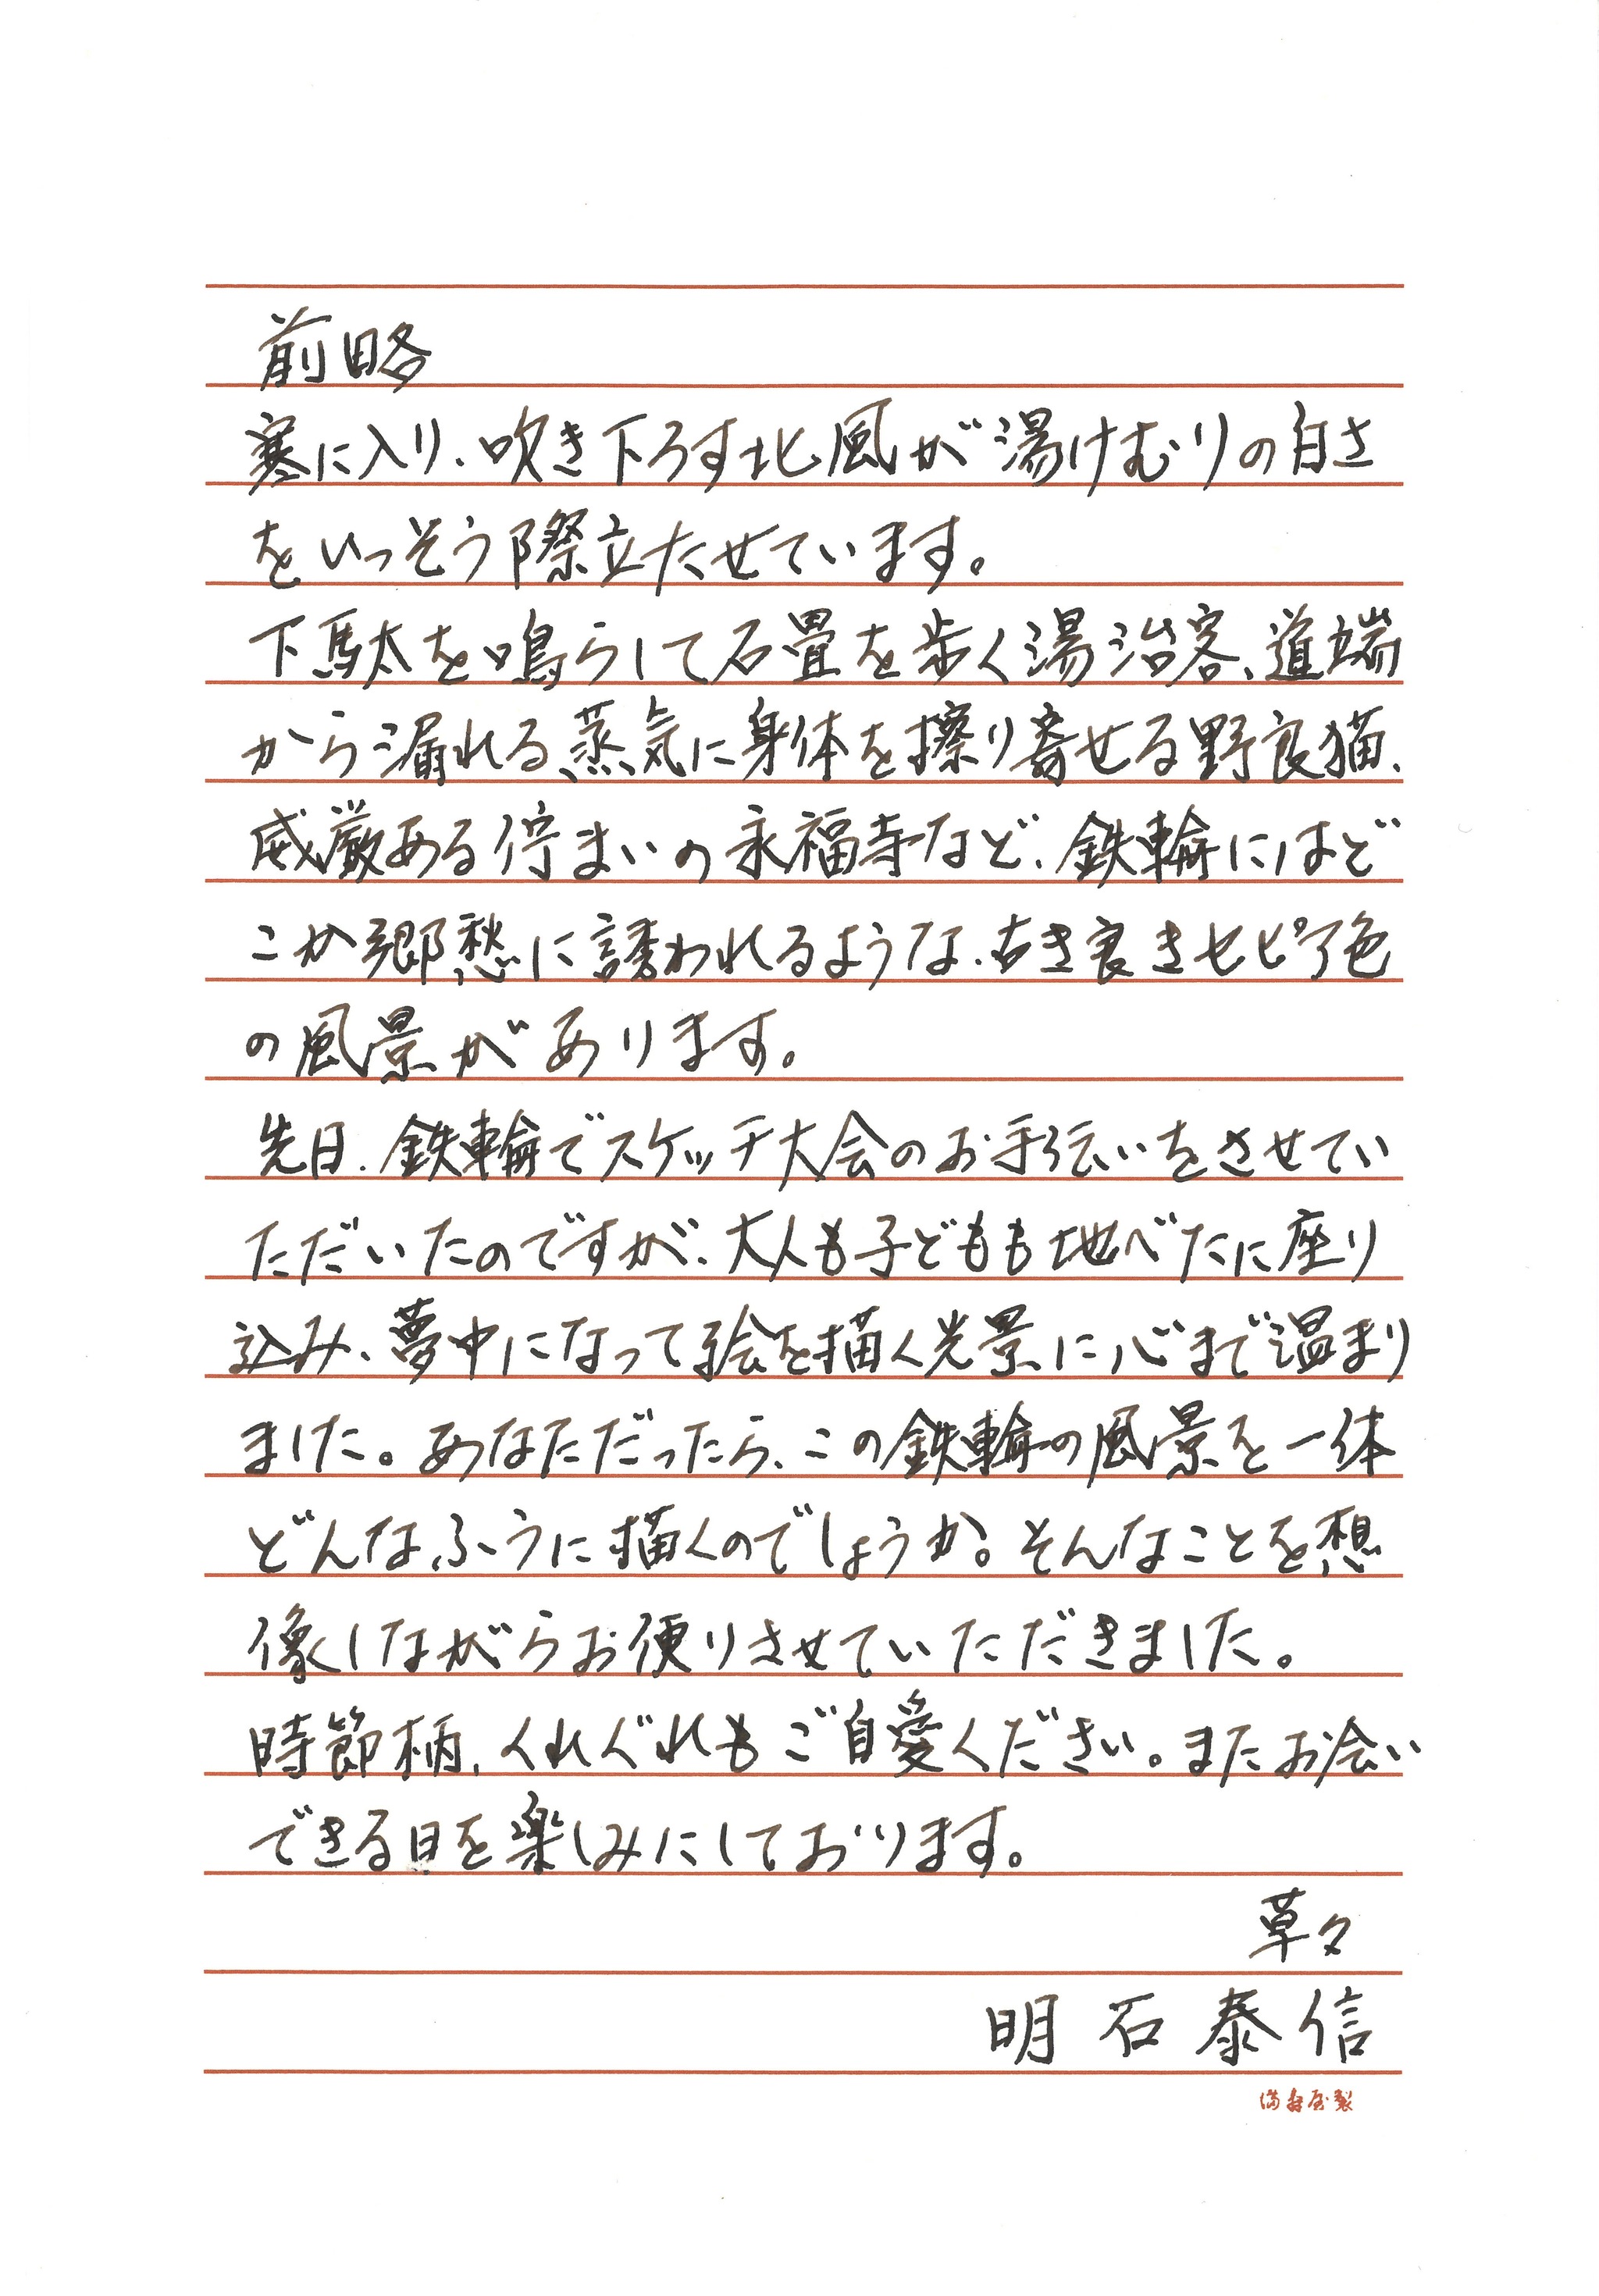 前略
寒に入り、吹き下ろす北風が湯けむりの白さ
をいっそう際立たせています。
下駄を鳴らして石畳を歩く湯治客、道端
から漏れる蒸気に身体を擦り寄せる野良猫、
威厳ある佇まいの永福寺など、鉄輪にはど
こか郷愁に誘われるような、古き良きセピア色
の風景があります。
先日、鉄輪でスケッチ大会のお手伝いをさせてい
ただいたのですが、大人も子どもも地べたに座り
込み、夢中になって絵を描く光景に心まで温まり
ました。あなただったら、この鉄輪の風景を一体
どんなふうに描くのでしょうか。そんなことを想
像しながらお便りさせていただきました。
時節柄、くれぐれもご自愛ください。またお会い
できる日を楽しみにしております。
草々
明石泰信
満寿屋製